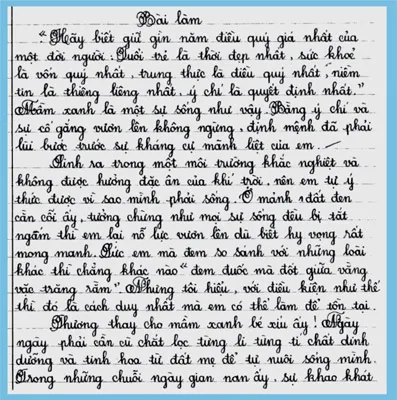 Bài làm
"Hãy biết giữ gìn năm điều quý giá nhất của
một đời người: Tuổi trẻ là thời đẹp nhất, sức khoẻ
là vốn quý nhất, trung thực là điều quý nhất, niềm
tin là thiêng liêng nhất, ý chí là quyết định nhất."
Mầm xanh là một sự sống như vậy. Bằng ý chí và
sự cố gắng vươn lên không ngừng, định mệnh đã phải
lùi bước trước sự kháng cự mãnh liệt của em.
Sinh ra trong một môi trường khắc nghiệt và
không được hưởng đặc ân của khí trời, nên em tự ý
thức được vì sao mình phải sống. Ở mảnh đất đen
cằn cỗi ấy, tưởng chừng như mọi sự sống đều bị tắt
ngấm thì em lại nỗ lực vươn lên dù biết hy vọng rất
mong manh. Sức em mà đem so sánh với những loài
khác thì chẳng khác nào "đem đuốc mà đốt giữa vầng
vặc trăng rằm". Nhưng tôi hiểu, với điều kiện như thế
thì đó là cách duy nhất mà em có thể làm để tồn tại.
Thương thay cho mầm xanh bé xíu ấy! Ngày
ngày phải cần cù chắt lọc từng li từng tí chất dinh
dưỡng và tinh hoa từ đất mẹ để tự nuôi sống mình.
Trong những chuỗi ngày gian nan ấy, sự khao khát